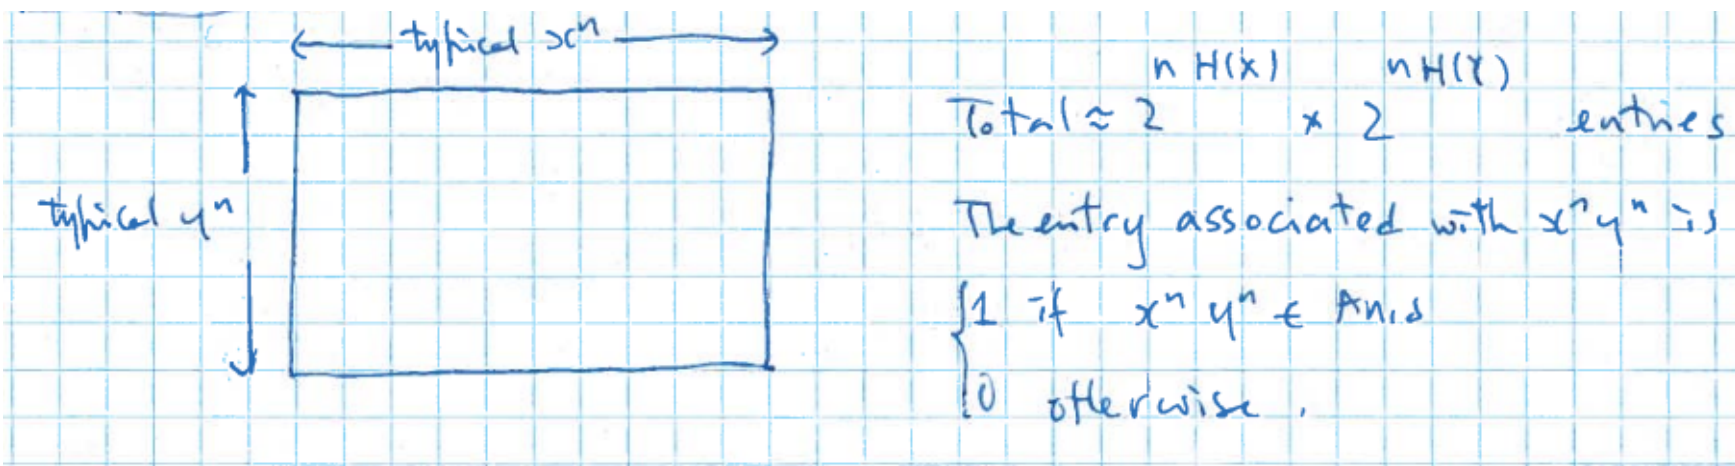 typical xⁿ
typical yⁿ
Total ≈ 2^{nH(X)} × 2^{nH(Y)} entries
The entry associated with xⁿyⁿ is
{1 if xⁿyⁿ ∈ An,δ
0 otherwise.